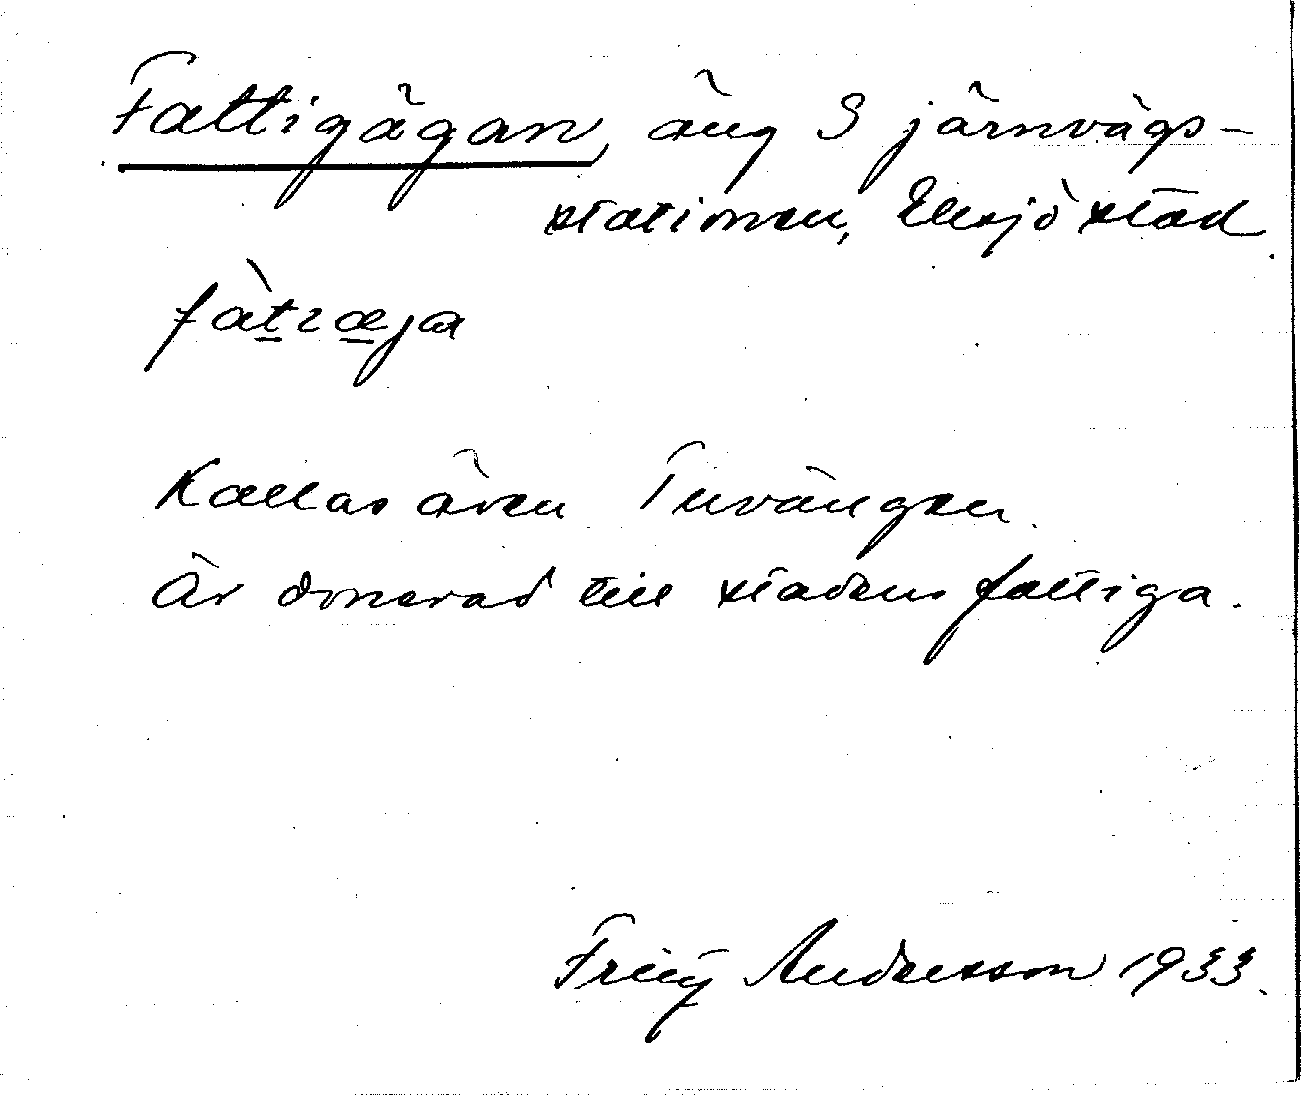 Fattigägan, äng S järnvägs-
stationen, Eksjö stad.
fàtıæja
Kallas även Tuvängen.
Är donerad till stadens fattiga.
Fritz Andersson 1933.